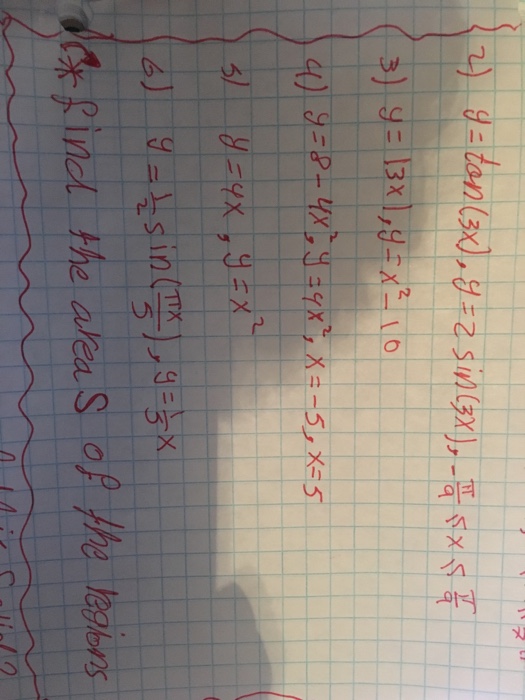 2) y = tan(3x), y = 2 sin(3x), -π/9 ≤ x ≤ π/9
3) y = |3x|, y = x² - 10
4) y = 8 - 4x², y = 4x², x = -5, x = 5
5) y = 4x, y = x²
6) y = 1/2 sin(πx/5), y = 1/5 x
* find the areas of the regions